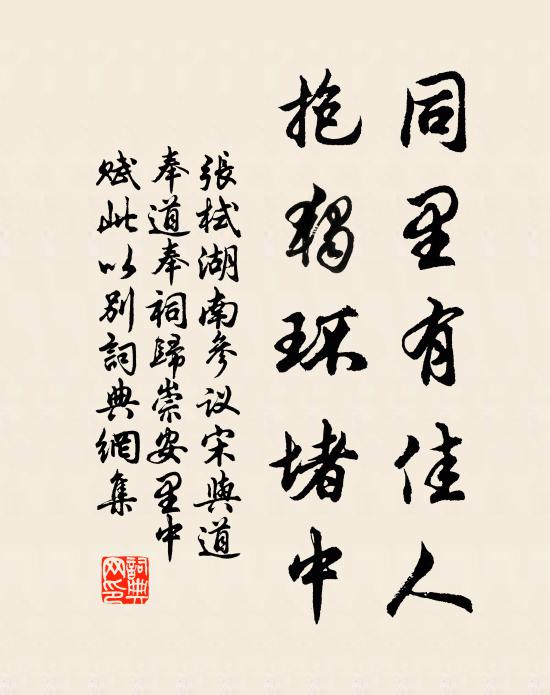 同里有佳人
抱独环堵中
張栻湖南参议宋與道
奉道奉祠歸崇安里中
赋此以别詞典網集
詞典网印